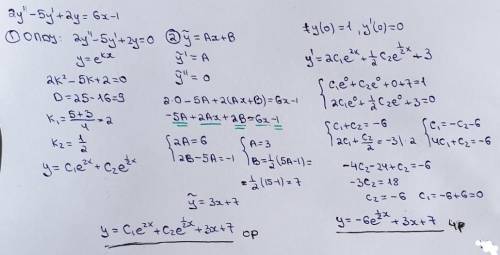 2y'' - 5y' + 2y = 6x - 1
① ОЛОДУ: 2y'' - 5y' + 2y = 0
y = e^{kx}
2k² - 5k + 2 = 0
D = 25 - 16 = 9
k₁ = (5+3)/4 = 2
k₂ = 1/2
y = C₁e^{2x} + C₂e^{1/2 x}
② ỹ = Ax + B
ỹ' = A
ỹ'' = 0
2·0 - 5A + 2(Ax + B) = 6x - 1
-5A + 2Ax + 2B = 6x - 1
{ 2A = 6
2B - 5A = -1
{ A = 3
B = 1/2 (5A - 1) =
= 1/2 (15 - 1) = 7
ỹ = 3x + 7
y = C₁e^{2x} + C₂e^{1/2 x} + 3x + 7 ОР
y(0) = 1, y'(0) = 0
y' = 2C₁e^{2x} + 1/2 C₂e^{1/2 x} + 3
{ C₁e⁰ + C₂e⁰ + 0 + 7 = 1
2C₁e⁰ + 1/2 C₂e⁰ + 3 = 0
{ C₁ + C₂ = -6
2C₁ + C₂/2 = -3 | ·2
{ C₁ = -C₂ - 6
4C₁ + C₂ = -6
-4C₂ - 24 + C₂ = -6
-3C₂ = 18
C₂ = -6 C₁ = -6 + 6 = 0
y = -6e^{1/2 x} + 3x + 7 ЧР